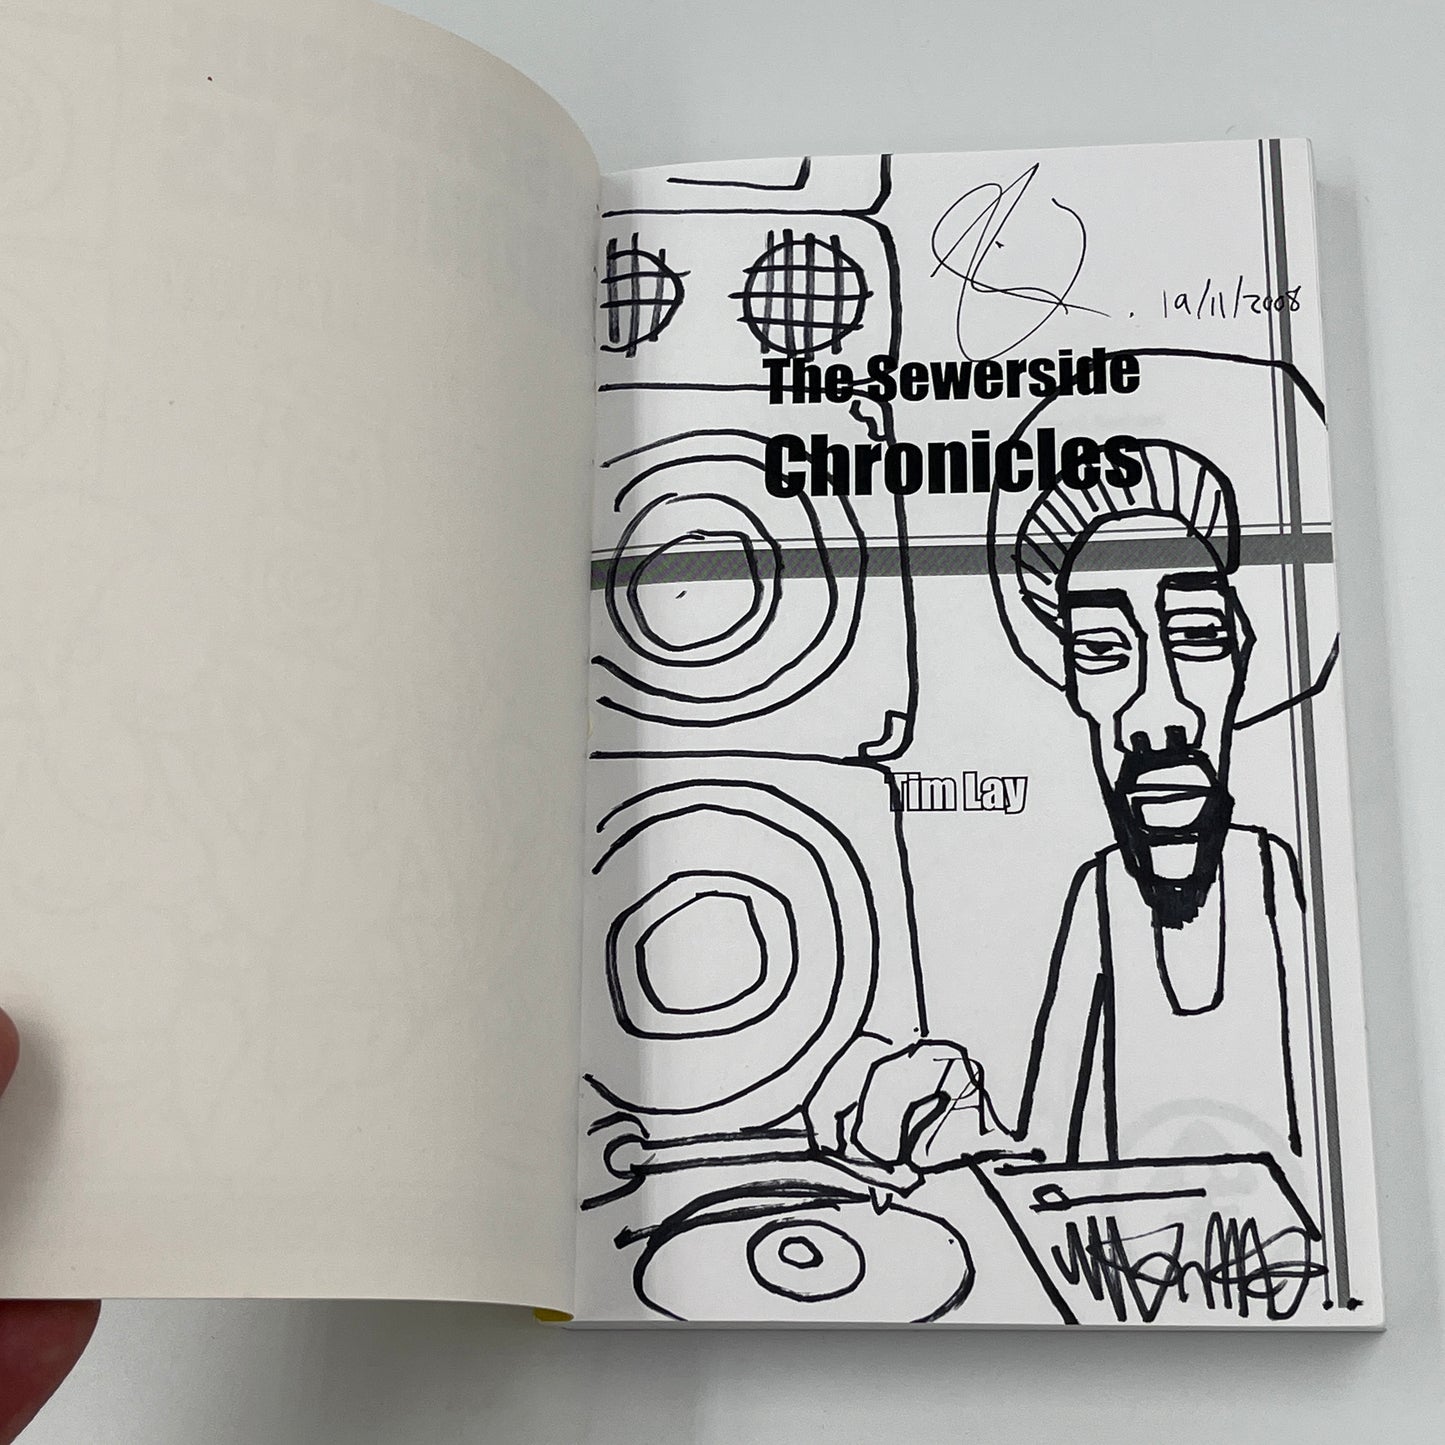 19/11/2008
The Sewerside
Chronicles
Tim Lay